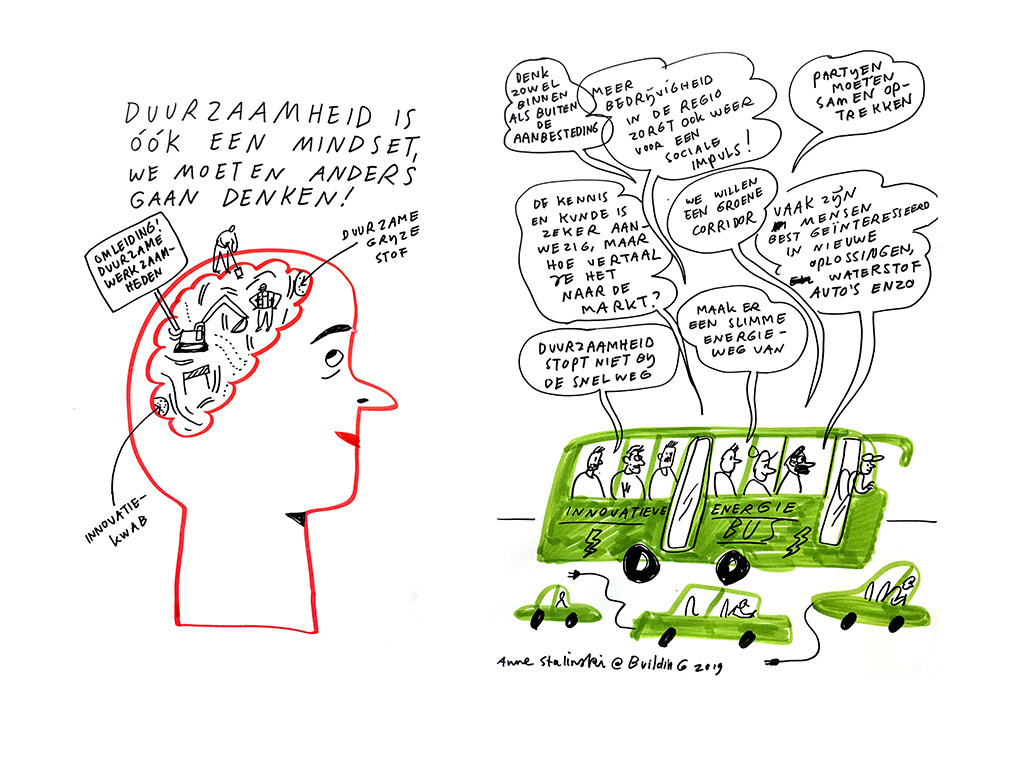 DUURZAAMHEID IS
ÓÓK EEN MINDSET,
WE MOETEN ANDERS
GAAN DENKEN!
OMLEIDING!
DUURZAME
WERKZAAM-
HEDEN
DUURZAME
GRIJZE
STOF
INNOVATIE-
KWAB
DENK
ZOWEL
BINNEN
ALS BUITEN
DE
AANBESTEDING
MEER
BEDRIJVIGHEID
IN DE REGIO
ZORGT OOK WEER
VOOR EEN
SOCIALE
IMPULS!
PARTIJEN
MOETEN
SAMEN OP-
TREKKEN
DE KENNIS
EN KUNDE IS
ZEKER AAN-
WEZIG, MAAR
HOE VERTAAL
JE HET
NAAR DE
MARKT?
WE WILLEN
EEN GROENE
CORRIDOR
VAAK ZIJN
MENSEN
BEST GEÏNTERESSEERD
IN NIEUWE
OPLOSSINGEN,
WATERSTOF
AUTO'S ENZO
DUURZAAMHEID
STOPT NIET BIJ
DE SNELWEG
MAAK ER
EEN SLIMME
ENERGIE-
WEG VAN
INNOVATIEVE ENERGIE
BUS
Anne Stalinski @ Building 2019